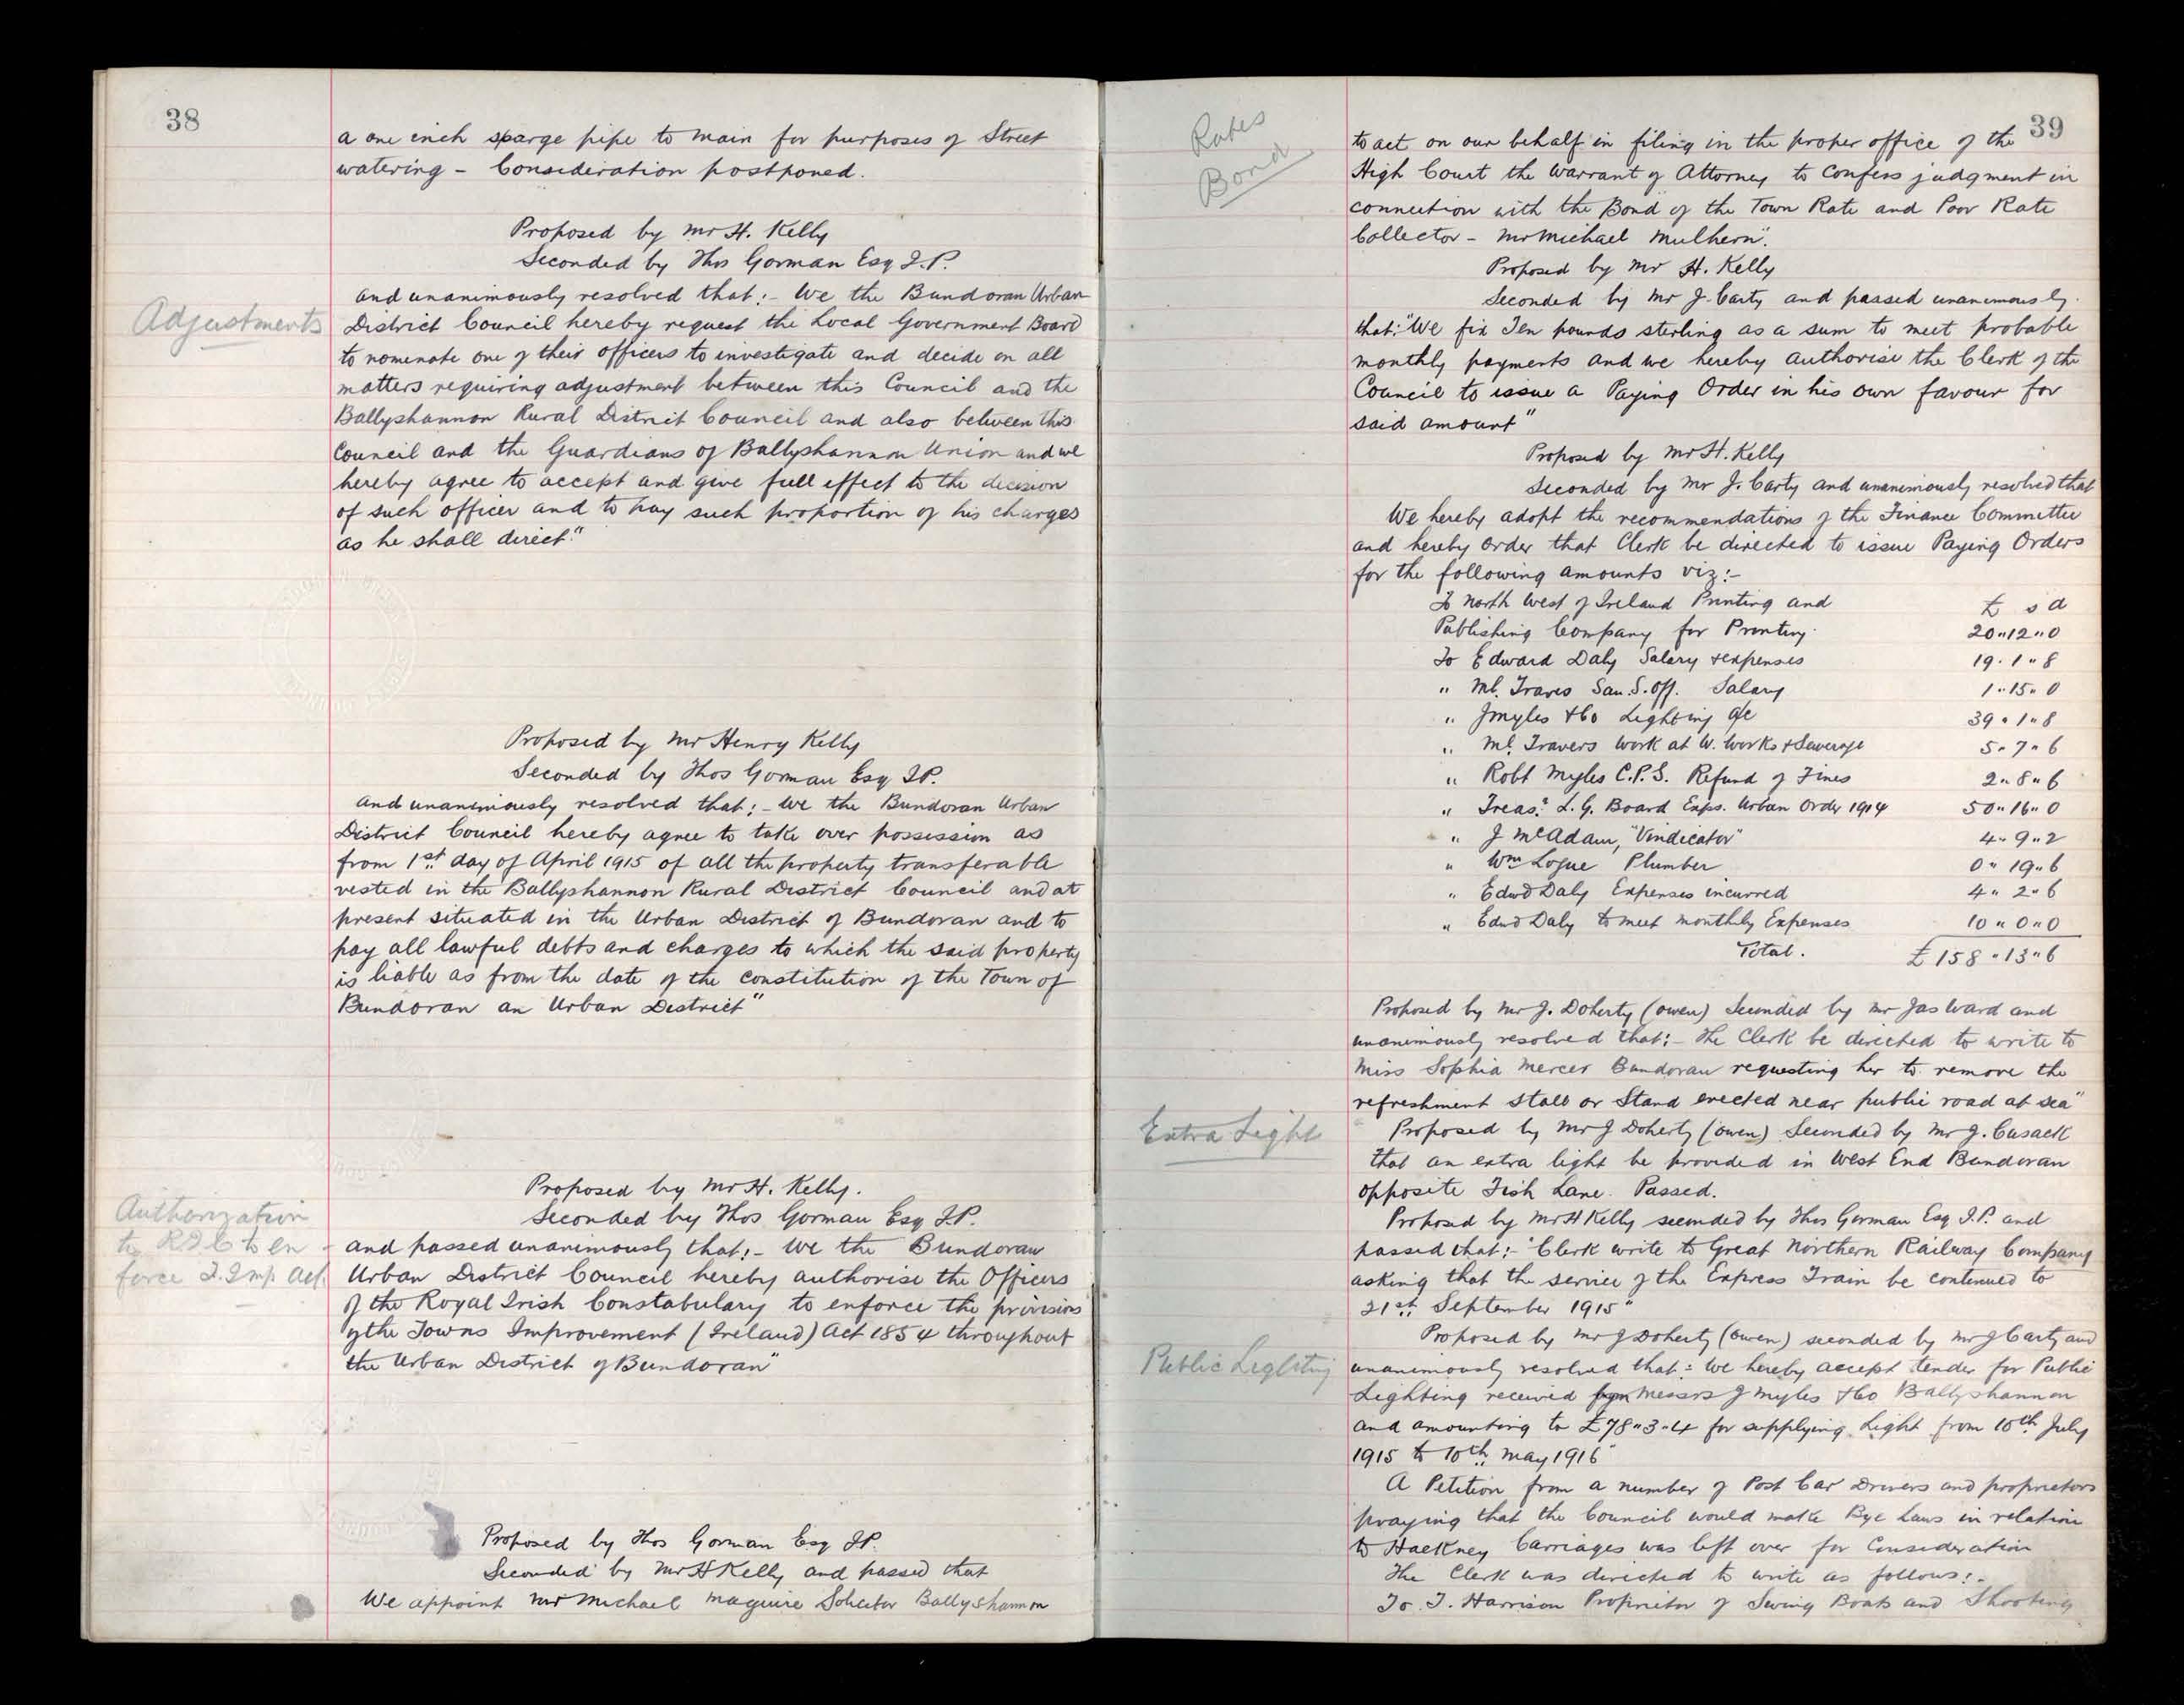 38
a one inch sparge pipe to main for purposes of Street
watering - Consideration postponed.
Proposed by Mr H. Kelly
Seconded by Thos Gorman Esq J.P.
Adjustments
and unanimously resolved that:- We the Bundoran Urban
District Council hereby request the Local Government Board
to nominate one of their officers to investigate and decide on all
matters requiring adjustment between this Council and the
Ballyshannon Rural District Council and also between this
Council and the Guardians of Ballyshannon Union and we
hereby agree to accept and give full effect to the decision
of such officer and to pay such proportion of his charges
as he shall direct."
Proposed by Mr Henry Kelly
Seconded by Thos Gorman Esq J.P.
and unanimously resolved that:- We the Bundoran Urban
District Council hereby agree to take over possession as
from 1st day of April 1915 of all the property transferable
vested in the Ballyshannon Rural District Council and at
present situated in the Urban District of Bundoran and to
pay all lawful debts and charges to which the said property
is liable as from the date of the constitution of the Town of
Bundoran an Urban District"
Proposed by Mr H. Kelly.
Seconded by Thos Gorman Esq J.P.
Authorization
to R I C to en
force T. Imp Act.
and passed unanimously that:- We the Bundoran
Urban District Council hereby authorise the Officers
of the Royal Irish Constabulary to enforce the provisions
of the Towns Improvement (Ireland) Act 1854 throughout
the Urban District of Bundoran"
Proposed by Thos Gorman Esq J.P.
Seconded by Mr H Kelly and passed that
We appoint Mr Michael Maguire Solicitor Ballyshannon
39
Rates
Bond
to act on our behalf in filing in the proper office of the
High Court the Warrant of Attorney to Confess judgment in
connection with the Bond of the Town Rate and Poor Rate
Collector - Mr Michael Mulhern".
Proposed by Mr H. Kelly
Seconded by Mr J. Carty and passed unanimously.
that:"We fix Ten pounds sterling as a sum to meet probable
monthly payments and we hereby authorise the Clerk of the
Council to issue a Paying Order in his own favour for
said amount"
Proposed by Mr H. Kelly
Seconded by Mr J. Carty and unanimously resolved that
We hereby adopt the recommendations of the Finance Committee
and hereby order that Clerk be directed to issue Paying Orders
for the following amounts viz:-
To North West of Ireland Printing and £ s d
Publishing Company for Printing 20"12"0
To Edward Daly Salary & expenses 19.1"8
" Ml. Travers San. S. Off. Salary 1"15"0
" J Myles & Co Lighting a/c 39"1"8
" Ml. Travers work at W. Works & Sewerage 5"7"6
" Robt Myles C.P.S. Refund of Fines 2"8"6
" Treasr. L.G. Board Exps. Urban Order 1914 50"16"0
" J McAdam, "Vindicator" 4"9"2
" Wm Logue Plumber 0"19"6
" Edwd Daly Expenses incurred 4"2"6
" Edwd Daly to meet monthly Expenses 10"0"0
Total. £158"13"6
Proposed by Mr J. Doherty (owen) Seconded by Mr Jas Ward and
unanimously resolved that:- The Clerk be directed to write to
Miss Sophia Mercer Bundoran requesting her to remove the
refreshment stall or Stand erected near public road at sea"
Extra Light
Proposed by Mr J Doherty (owen) Seconded by Mr J. Cusack
that an extra light be provided in West End Bundoran
opposite Fish Lane. Passed.
Proposed by Mr H Kelly seconded by Thos Gorman Esq J.P. and
passed that:- "Clerk write to Great Northern Railway Company
asking that the service of the Express Train be continued to
21st September 1915"
Public Lighting
Proposed by Mr J Doherty (owen) seconded by Mr J Carty and
unanimously resolved that: We hereby accept tender for Public
Lighting received from Messrs J Myles & Co Ballyshannon
and amounting to £78"3"4 for supplying Light from 10th July
1915 to 10th May 1916"
A Petition from a number of Post Car Drivers and proprietors
praying that the Council would make Bye Laws in relation
to Hackney Carriages was left over for Consideration
The Clerk was directed to write as follows:-
To T. Harrison Proprietor of Swing Boats and Shooting